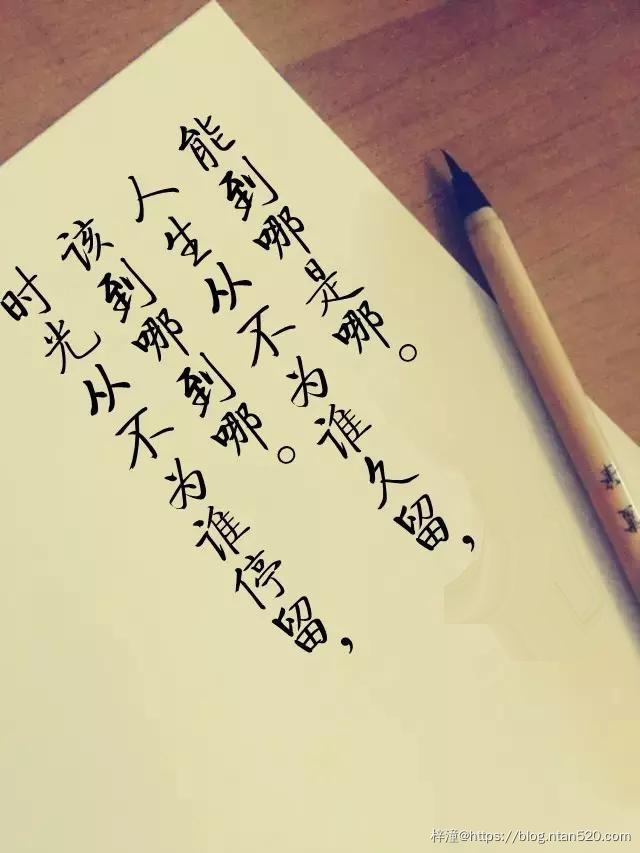 时光从不为谁停留，
该到哪到哪。
人生从不为谁久留，
能到哪是哪。
梓潼@https://blog.ntan520.com